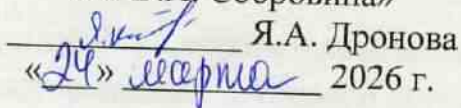 Я.А. Дронова
«24» марта 2026 г.